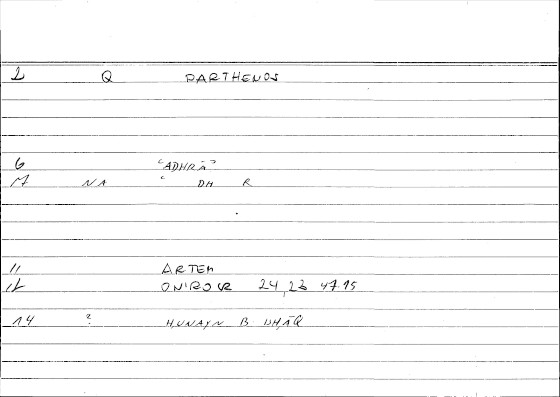 2 Q PARTHENOS
6 "ADHRĀ"
7 NA ʿ DH R
11 ARTEM
12 ONIROCR 24,23 47.15
14 ? HUNAYN B ISHĀQ